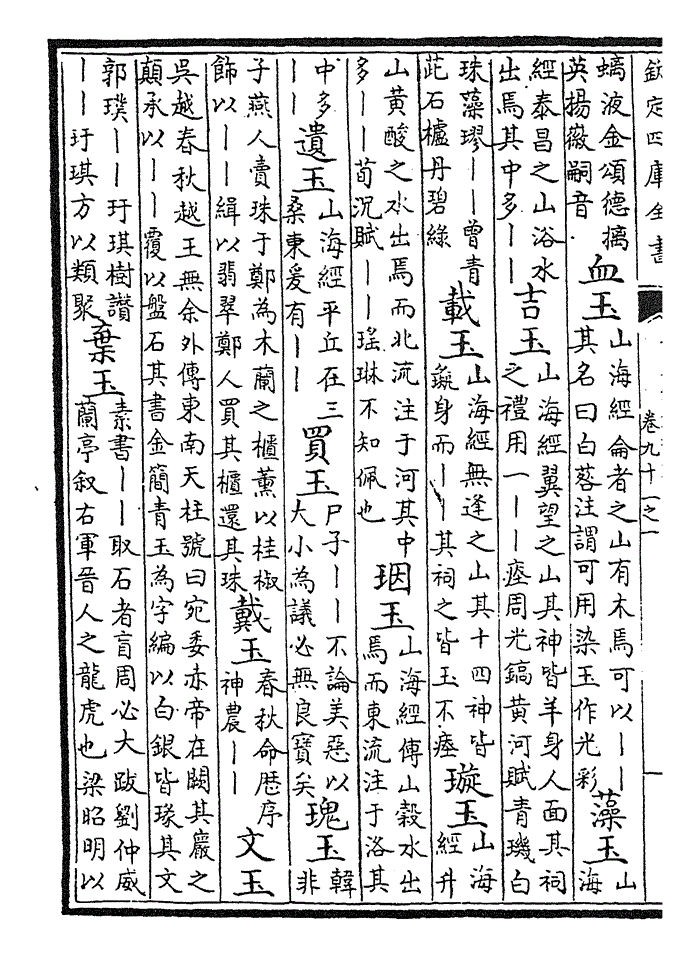 欽定四庫全書
卷九十一之一
螭液金頌德摛
英揚徽嗣音
血玉
山海經侖者之山有木焉可以——
其名曰白䓘注謂可用染玉作光彩
藻玉
山
海
經泰昌之山浴水
出焉其中多——
吉玉
山海經翼望之山其神皆羊身人面其祠
之禮用一——瘞周光鎬黃河賦青璣白
珠藻璆——曾青
茈石櫨丹碧綠
載玉
山海經無逢之山其十四神皆
彘身而——其祠之皆玉不瘞
璇玉
山海
經升
山黃酸之水出焉而北流注于河其中
多——荀況賦——瑤琳不知佩也
珚玉
山海經傅山榖水出
焉而東流注于洛其
中多
——
遺玉
山海經平丘在三
桑東爰有——
買玉
尸子——不論美惡以
大小為議必無良寶矣
瑰玉
韓
非
子燕人賣珠于鄭為木蘭之櫃薰以桂椒
飾以——緝以翡翠鄭人買其櫃還其珠
戴玉
春秋命歴序
神農——
文玉
吳越春秋越王無余外傳東南天柱號曰宛委赤帝在闕其巖之
顛承以——覆以盤石其書金簡青玉為字編以白銀皆瑑其文
郭璞——玗琪樹讚
——玗琪方以類聚
棄玉
素書——取石者盲周必大跋劉仲威
蘭亭叙右軍晉人之龍虎也梁昭明以